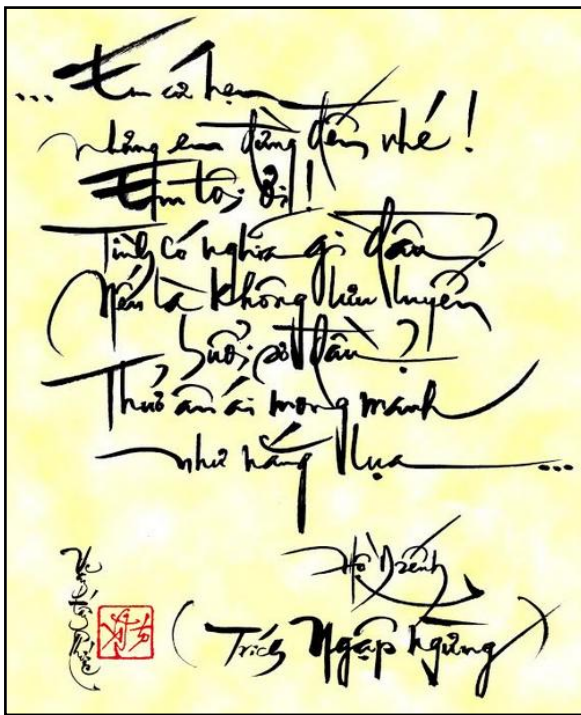 ... Em cứ hẹn
nhưng em đừng đến nhé!
Em tôi ơi!
Tình có nghĩa gì đâu?
Nếu là không lưu luyến
buổi sơ đầu?
Thuở ân ái mong manh
như nắng lụa ...
Hồ Dzếnh
(Trích Ngập Ngừng)